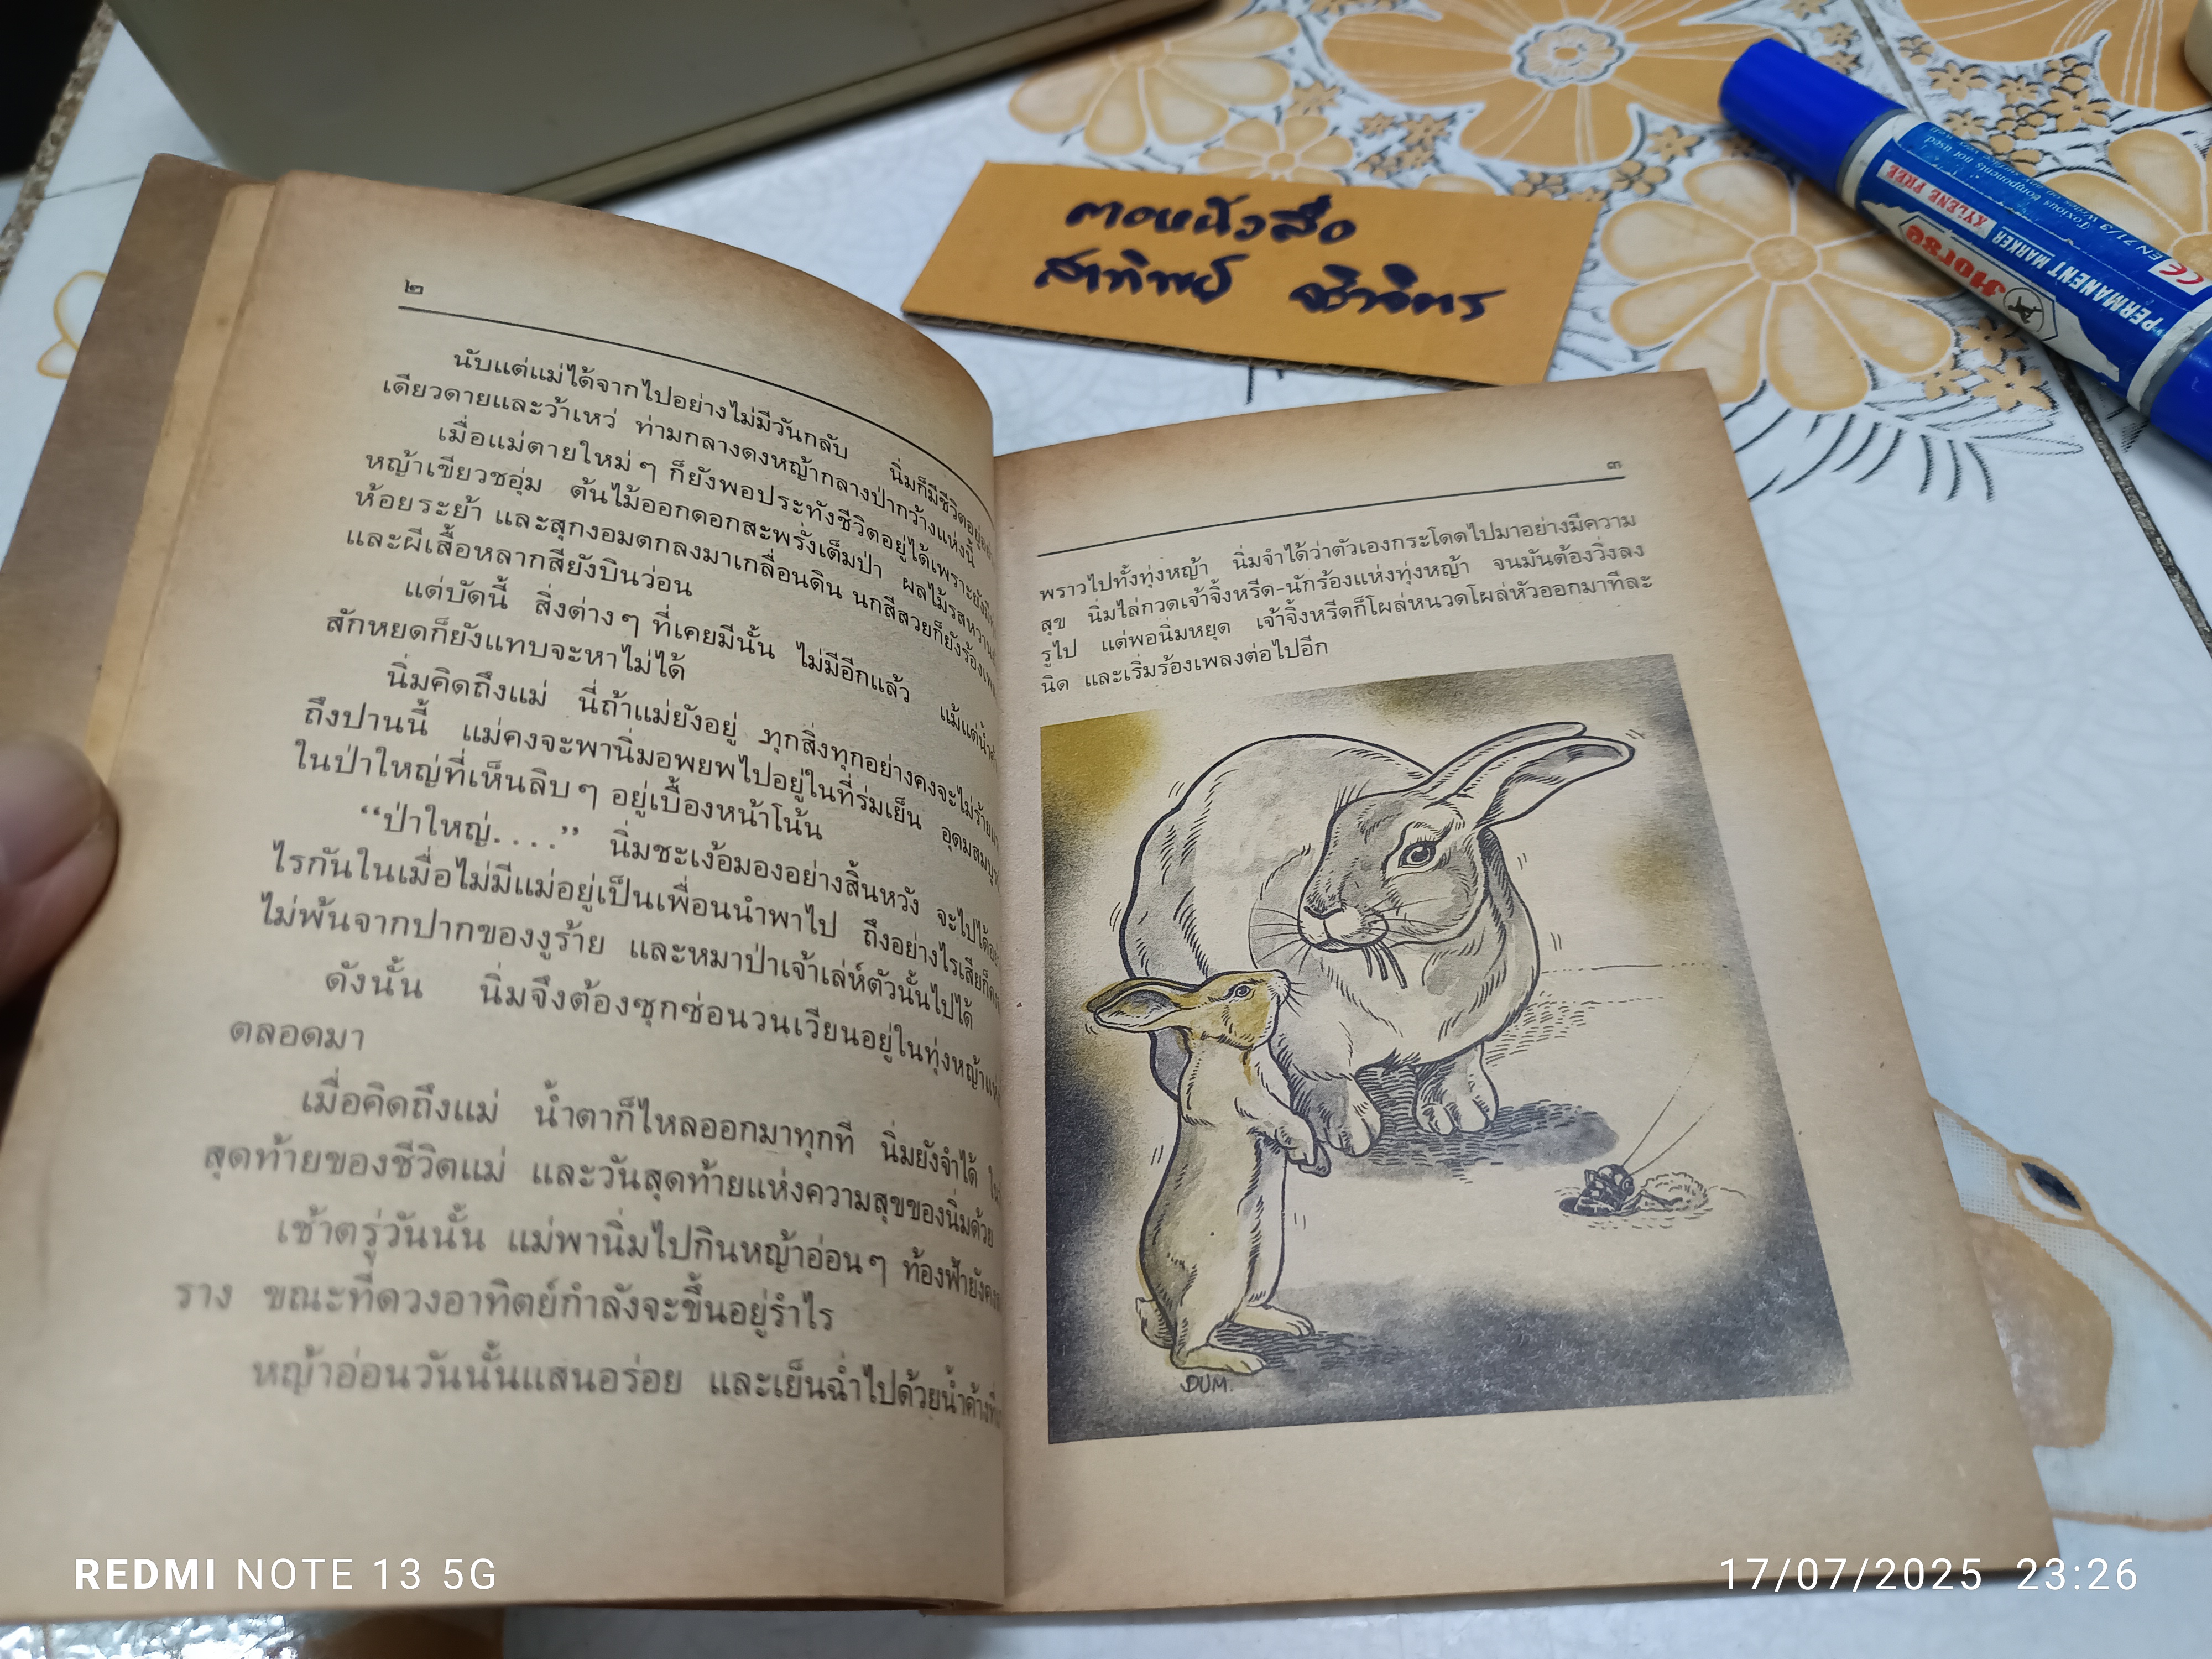 ตอหนังสือ
สาทิพย์ ชีวจิตร
Toxious components not used
EN 71/3
CE
XYLENE FREE
Horse
PERMANENT MARKER
๒
นับแต่แม่ได้จากไปอย่างไม่มีวันกลับ นิ่มก็มีชีวิตอยู่
เดียวดายและว้าเหว่ ท่ามกลางดงหญ้ากลางป่ากว้างแห่งนี้
เมื่อแม่ตายใหม่ ๆ ก็ยังพอประทังชีวิตอยู่ได้เพราะยังมี
หญ้าเขียวชอุ่ม ต้นไม้ออกดอกสะพรั่งเต็มป่า ผลไม้รสหวาน
ห้อยระย้า และสุกงอมตกลงมาเกลื่อนดิน นกสีสวยก็ยังร้องเพลง
และผีเสื้อหลากสียังบินว่อน
แต่บัดนี้ สิ่งต่าง ๆ ที่เคยมีนั้น ไม่มีอีกแล้ว แม้แต่น้ำ
สักหยดก็ยังแทบจะหาไม่ได้
นิ่มคิดถึงแม่ นี่ถ้าแม่ยังอยู่ ทุกสิ่งทุกอย่างคงจะไม่ร้าย
ถึงปานนี้ แม่คงจะพานิ่มอพยพไปอยู่ในที่ร่มเย็น อุดมสมบูรณ์
ในป่าใหญ่ที่เห็นลิบ ๆ อยู่เบื้องหน้าโน้น
“ป่าใหญ่. . . .” นิ่มชะเง้อมองอย่างสิ้นหวัง จะไปได้
ไรกันในเมื่อไม่มีแม่อยู่เป็นเพื่อนนำพาไป ถึงอย่างไรเสียก็คง
ไม่พ้นจากปากของงูร้าย และหมาป่าเจ้าเล่ห์ตัวนั้นไปได้
ดังนั้น นิ่มจึงต้องซุกซ่อนวนเวียนอยู่ในทุ่งหญ้า
ตลอดมา
เมื่อคิดถึงแม่ น้ำตาก็ไหลออกมาทุกที นิ่มยังจำได้
สุดท้ายของชีวิตแม่ และวันสุดท้ายแห่งความสุขของนิ่มด้วย
เช้าตรู่วันนั้น แม่พานิ่มไปกินหญ้าอ่อน ๆ ท้องฟ้ายังคง
ราง ขณะที่ดวงอาทิตย์กำลังจะขึ้นอยู่รำไร
หญ้าอ่อนวันนั้นแสนอร่อย และเย็นฉ่ำไปด้วยน้ำค้างที่
๓
พราวไปทั้งทุ่งหญ้า นิ่มจำได้ว่าตัวเองกระโดดไปมาอย่างมีความ
สุข นิ่มไล่กวดเจ้าจิ้งหรีด-นักร้องแห่งทุ่งหญ้า จนมันต้องวิ่งลง
รูไป แต่พอนิ่มหยุด เจ้าจิ้งหรีดก็โผล่หนวดโผล่หัวออกมาทีละ
นิด และเริ่มร้องเพลงต่อไปอีก
DUM.
REDMI NOTE 13 5G
17/07/2025 23:26